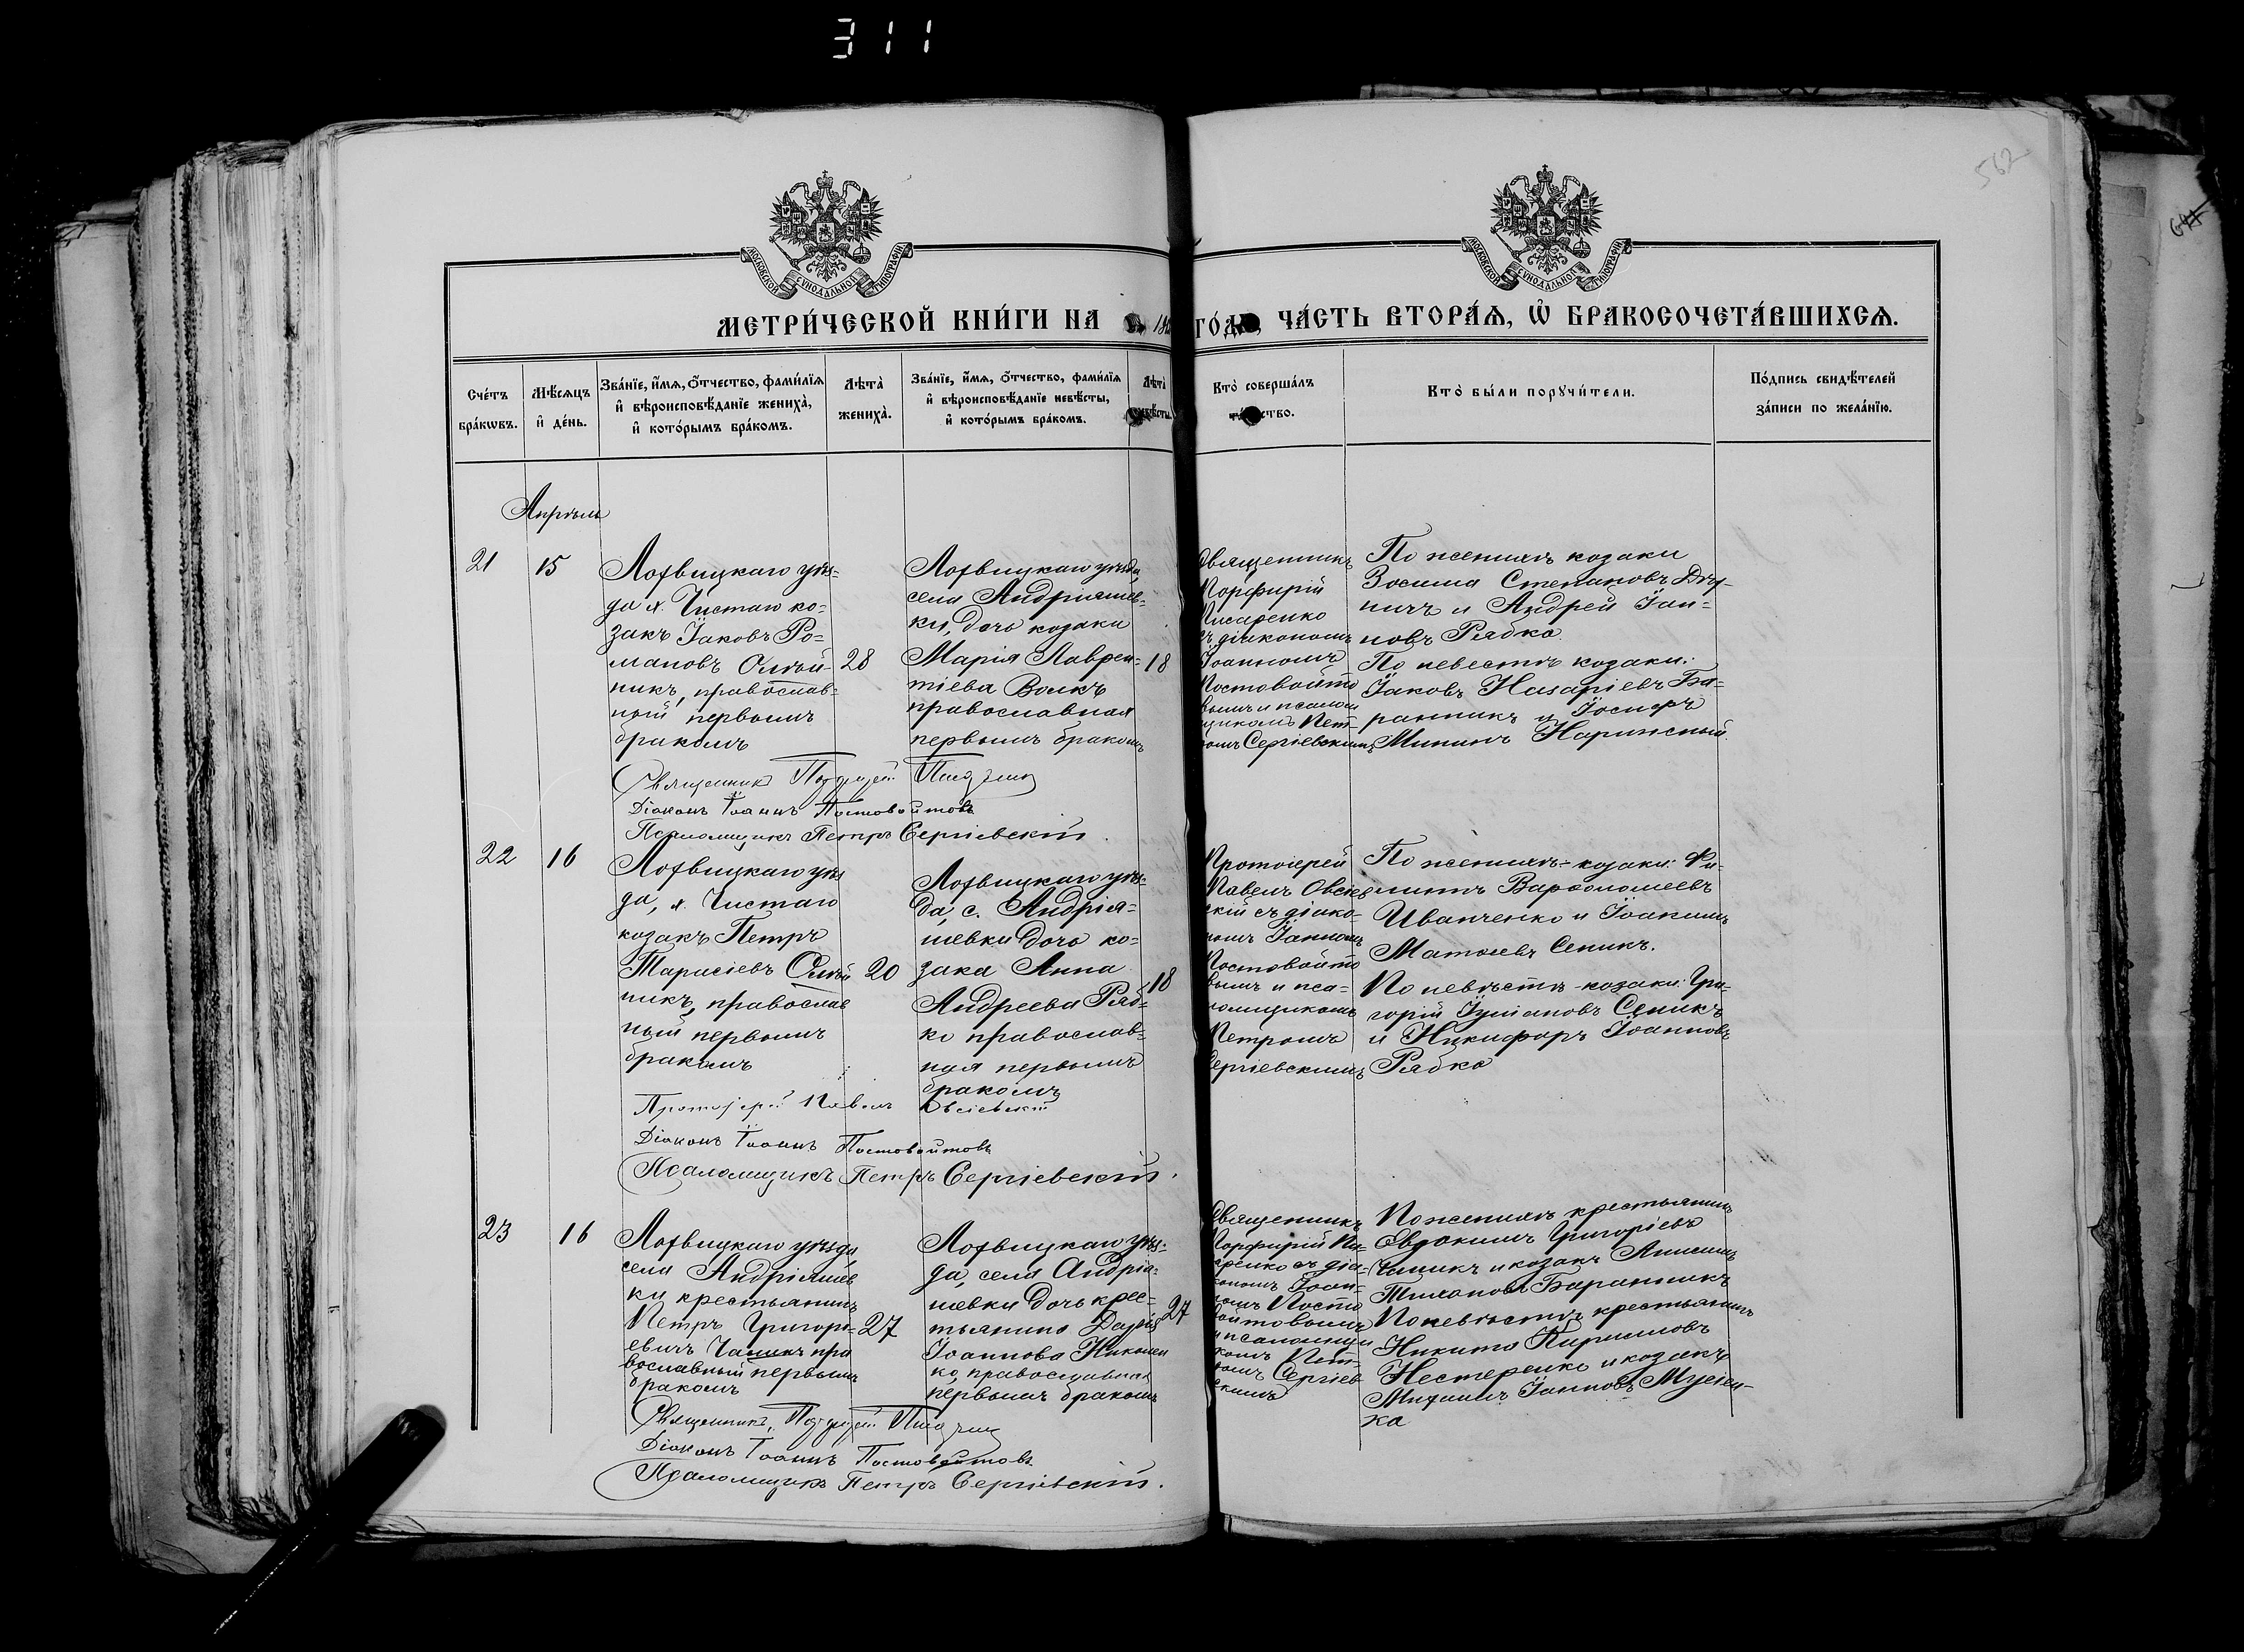 311
562
МОСКОВСКОЙ СѴНОДАЛЬНОЙ ТИПОГРАФІИ
МОСКОВСКОЙ СѴНОДАЛЬНОЙ ТИПОГРАФІИ
МЕТРИ́ЧЕСКОЙ КНИ́ГИ НА 18 ГО́ДЪ, ЧА́СТЬ ВТОРА́Ѧ, Ѡ҆ БРАКОСОЧЕТА́ВШИХСѦ.
Сче́тъ
бра́кѡвъ.
Мѣ́сяцъ
и҆ де́нь.
Зва́нїе, и҆́мѧ, ѻ҆́тчество, фами́лїѧ
и҆ вѣроисповѣ́данїе жениха̀,
и҆ кото́рымъ бра́комъ.
Лѣта̀
жениха̀.
Зва́нїе, и҆́мѧ, ѻ҆́тчество, фами́лїѧ
и҆ вѣроисповѣ́данїе невѣ́сты,
и҆ кото́рымъ бра́комъ.
Лѣта̀
невѣ́сты.
Кто̀ соверша́лъ
та́инство.
Кто̀ бы́ли порꙋчи́тели.
По́дпись свидѣ́телей
за́писи по жела́нїю.
Апрѣль
21
15
Лохвицкаго уѣз-
да х. Чистаго ко-
закъ Іаковъ Ро-
мановъ Олѣй-
никъ, православ-
ный первымъ
бракомъ
28
Лохвицкаго уѣзда,
села Андріяшев-
ки, дочь козака
Марія Лаврен-
тіева Волкъ
православная
первымъ бракомъ
18
Священникъ
Порфирій
Писаренко
съ діакономъ
Іоанномъ
Постовойто
вымъ и псалом
щикомъ Пет-
ромъ Сергіевскимъ
По женихѣ козаки
Зосима Степановъ
и Андрей Іан-
новъ Рябко.
По невестѣ козаки:
Іаковъ Назаріевъ Ба-
ранникъ и Іосифъ
Мининъ Нарижный.
Священникъ Порфирій Писаренко
Діаконъ Іоаннъ Постовойтовъ
Псаломщикъ Петръ Сергіевскій.
22
16
Лохвицкаго уѣз
да, х. Чистаго
козакъ Петръ
Тарасіевъ Олѣй
никъ, православ
ный первымъ
бракомъ
20
Лохвицкаго уѣз-
да, с. Андрія-
шевки дочь ко-
зака Анна
Андреева Ряб-
ко православ-
ная первымъ
бракомъ
18
Протоіерей
Павелъ Овсіев
скій съ діако-
номъ Іанномъ
Постовойто
вымъ и пса-
ломщикомъ
Петромъ
Сергіевскимъ
По женихѣ-козаки: Фи-
липпъ Варфоломеевъ
Иванченко и Іоакимъ
Матѳіевъ Сеникъ.
По невѣстѣ-козаки: Гри-
горій Іуліановъ Сеникъ
и Никифоръ Іоанновъ
Рябко
Протоіерей Павелъ Овсіевскій
Діаконъ Іоаннъ Постовойтовъ
Псаломщикъ Петръ Сергіевскій.
23
16
Лохвицкаго уѣзда
села Андріяшев
ки крестьянинъ
Петръ Григорі-
евичъ пра
вославный первымъ
бракомъ
27
Лохвицкаго уѣз-
да, села Андрія-
шевки дочь крес-
тьянина Дарія
Іоаннова Николен
ко, православная
первымъ бракомъ
27
Священникъ
Порфирій Пи-
саренко съ діа-
кономъ Іоан-
номъ Посто
войтовымъ
и псаломщи
комъ Пет-
ромъ Сергіев
скимъ
По женихѣ крестьянинъ
Евдокимъ Григоріевъ
и козакъ Анисимъ
Тихоновъ Баранникъ
По невѣстѣ крестьянинъ
Никита Кирилловъ
Нестеренко и козакъ
Михаилъ Іанновъ Мусіен-
ка
Священникъ Порфирій Писаренко
Діаконъ Іоаннъ Постовойтовъ
Псаломщикъ Петръ Сергіевскій.